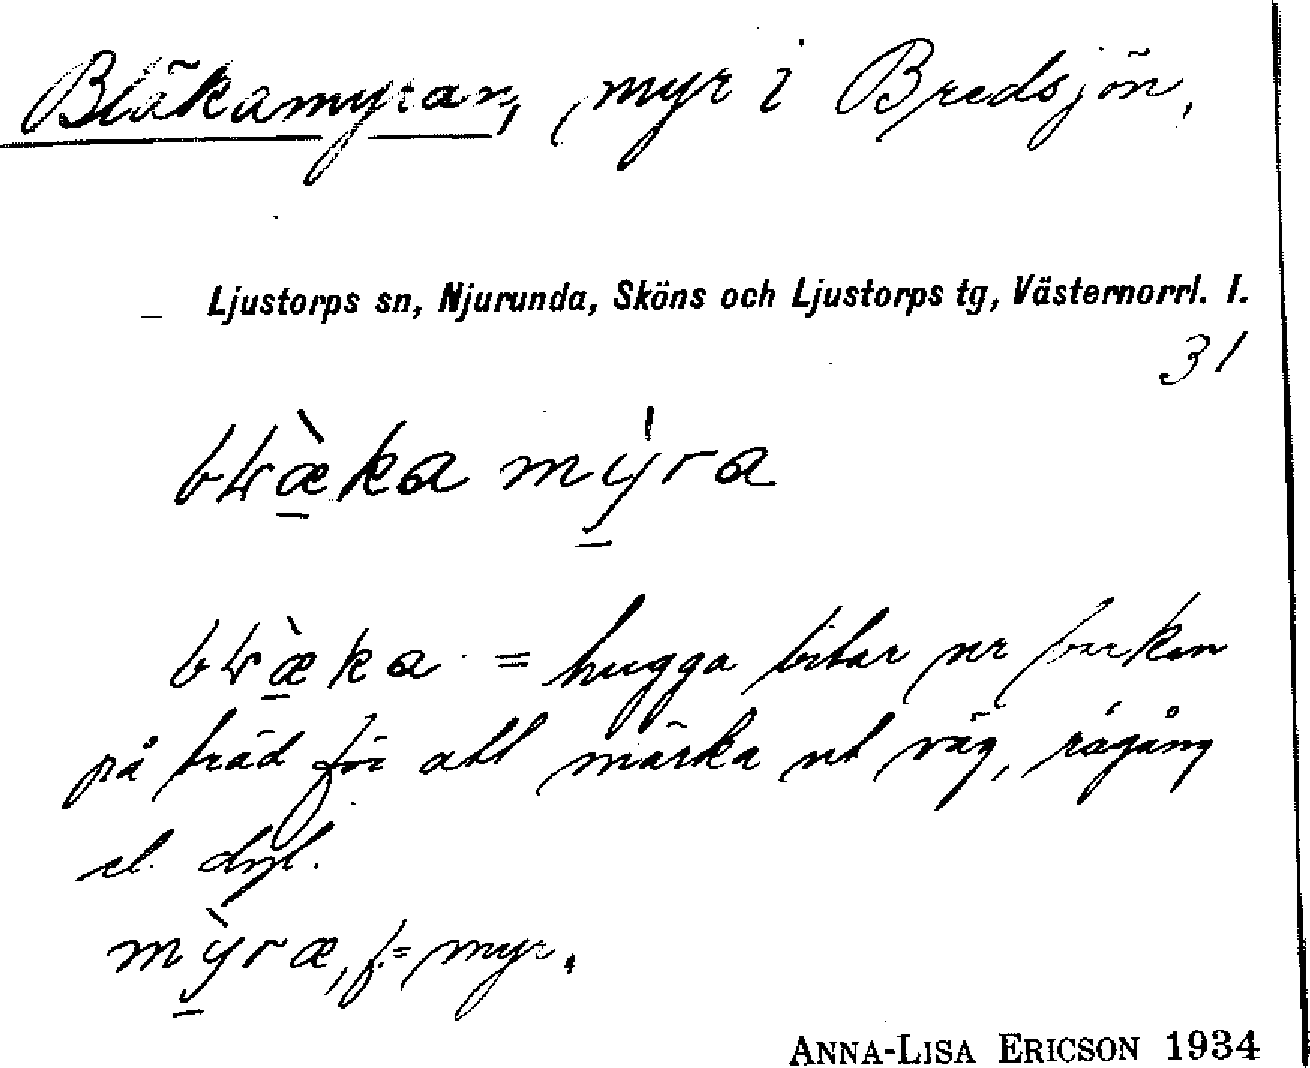 Bläkamyran, myr i Bredsjön,
Ljustorps sn, Njurunda, Sköns och Ljustorps tg, Västernorrl. l.
31
blæ̀ka mýra
blæ̀ka = hugga bitar ur barken
på träd för att märka ut väg, rågång
el. dyl.
mỳræ, f. = myr.
ANNA-LISA ERICSON 1934